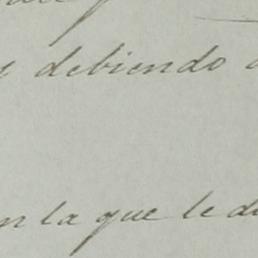 y debiendo
en la que le